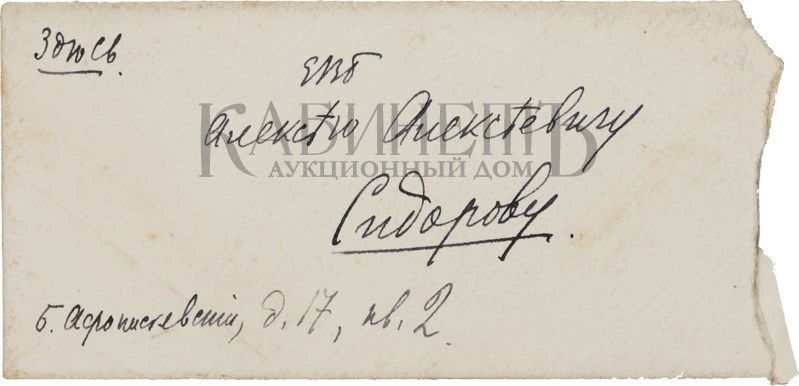 Здѣсь.
ЕВБ
Алексѣю Алексѣевичу
КАБИНЕТЪ
АУКЦИОННЫЙ ДОМ
Сидорову.
Б. Афанасьевскій, д. 17, кв. 2.